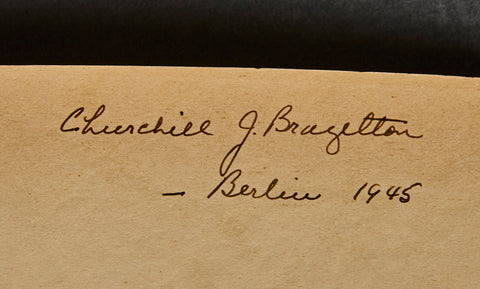 Churchill J. Brazelton
– Berlin 1945